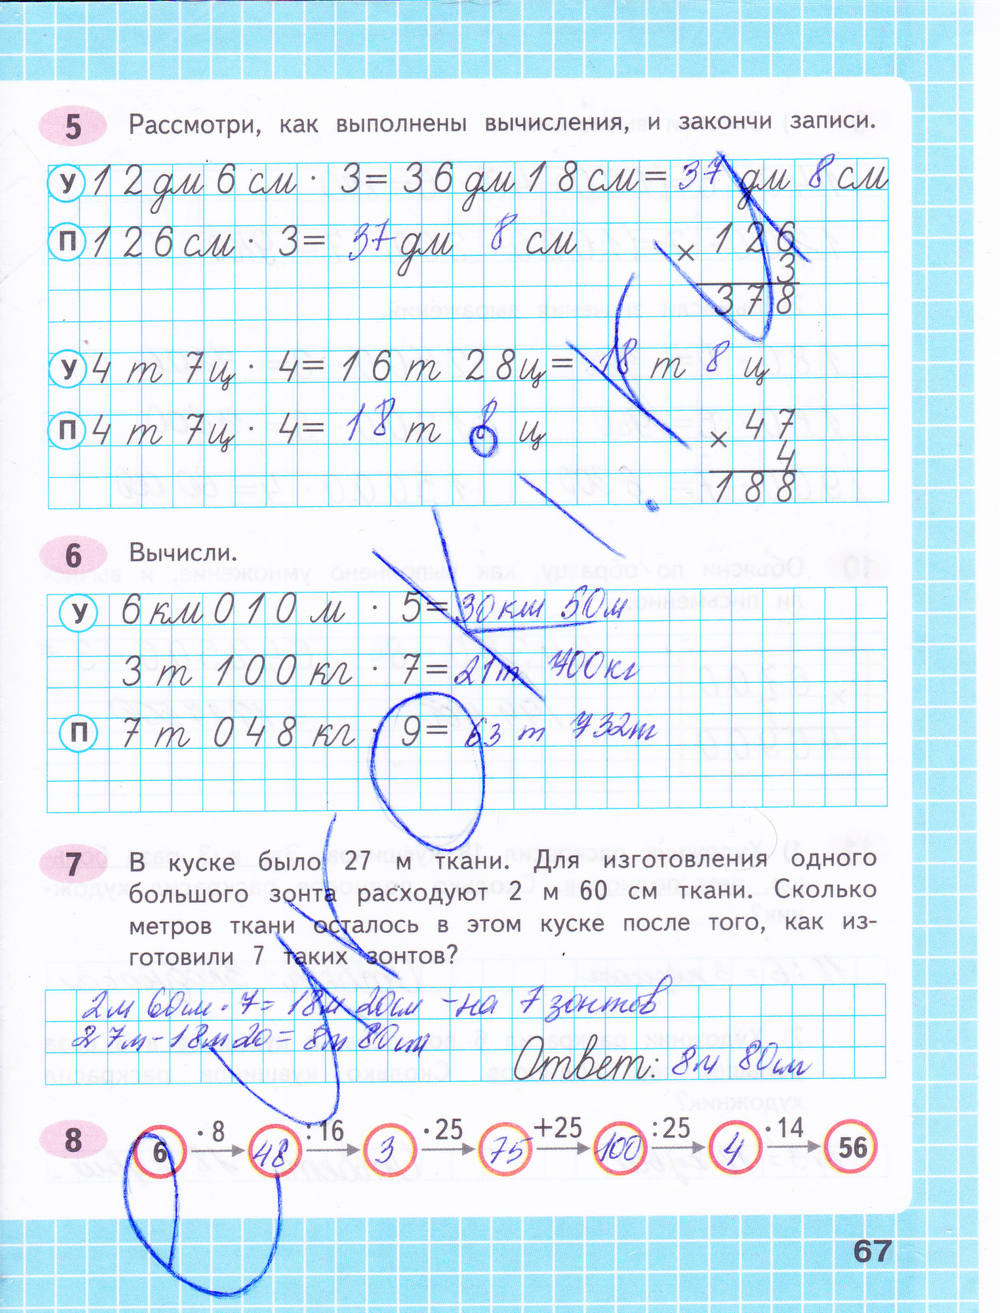 5 Рассмотри, как выполнены вычисления, и закончи записи.
У 12 дм 6 см · 3 = 36 дм 18 см = 37 дм 8 см
П 126 см · 3 = 37 дм 8 см
× 126
3
378
У 4 т 7 ц · 4 = 16 т 28 ц = 18 т 8 ц
П 4 т 7 ц · 4 = 18 т 8 ц
× 47
4
188
6 Вычисли.
У 6 км 010 м · 5 = 30 км 50 м
3 т 100 кг · 7 = 21 т 700 кг
П 7 т 048 кг · 9 = 63 т 432
7 В куске было 27 м ткани. Для изготовления одного
большого зонта расходуют 2 м 60 см ткани. Сколько
метров ткани осталось в этом куске после того, как из-
готовили 7 таких зонтов?
2м 60м · 7 = 18м 20см - на 7 зонтов
27м - 18м 20 = 8м 80см
Ответ: 8м 80см
8 6 ·8 48 :16 3 ·25 75 +25 100 :25 4 ·14 56
67